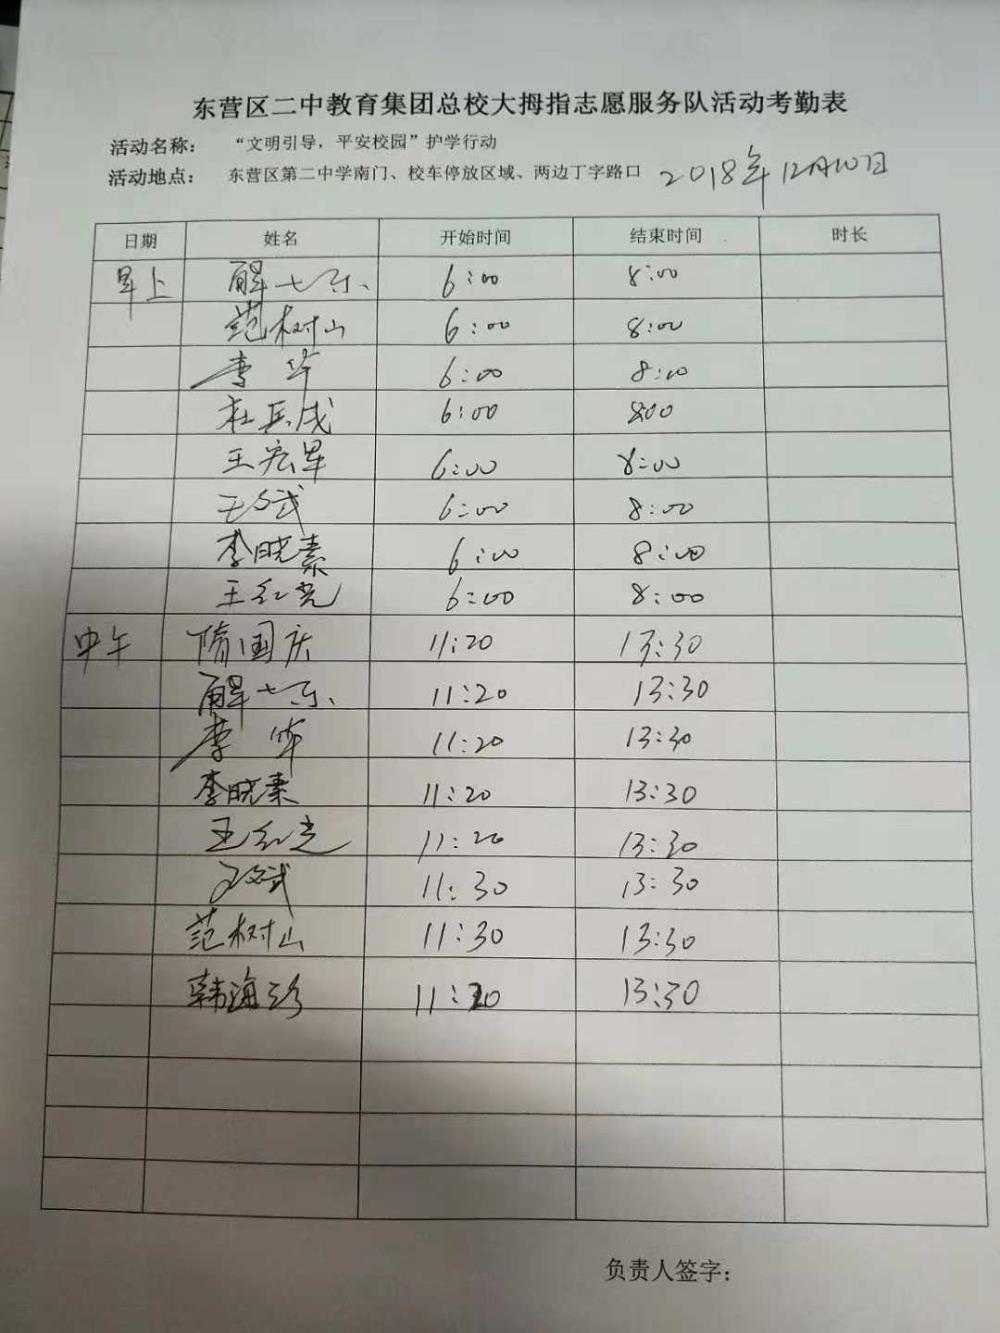 东营区二中教育集团总校大拇指志愿服务队活动考勤表
活动名称： “文明引导，平安校园”护学行动
活动地点： 东营区第二中学南门、校车停放区域、两边丁字路口 2018年12月10日
日期 姓名 开始时间 结束时间 时长
早上 解七东 6:00 8:00
范树山 6:00 8:00
李华 6:00 8:00
杜兵成 6:00 800
王宏军 6:00 8:00
王斌 6:00 8:00
李晓素 6:00 8:00
王红光 6:00 8:00
中午 隋国庆 11:20 13:30
解七东 11:20 13:30
李华 11:20 13:30
李晓素 11:20 13:30
王红光 11:20 13:30
11:30 13:30
范树山 11:30 13:30
韩海珍 11:20 13:30
负责人签字：